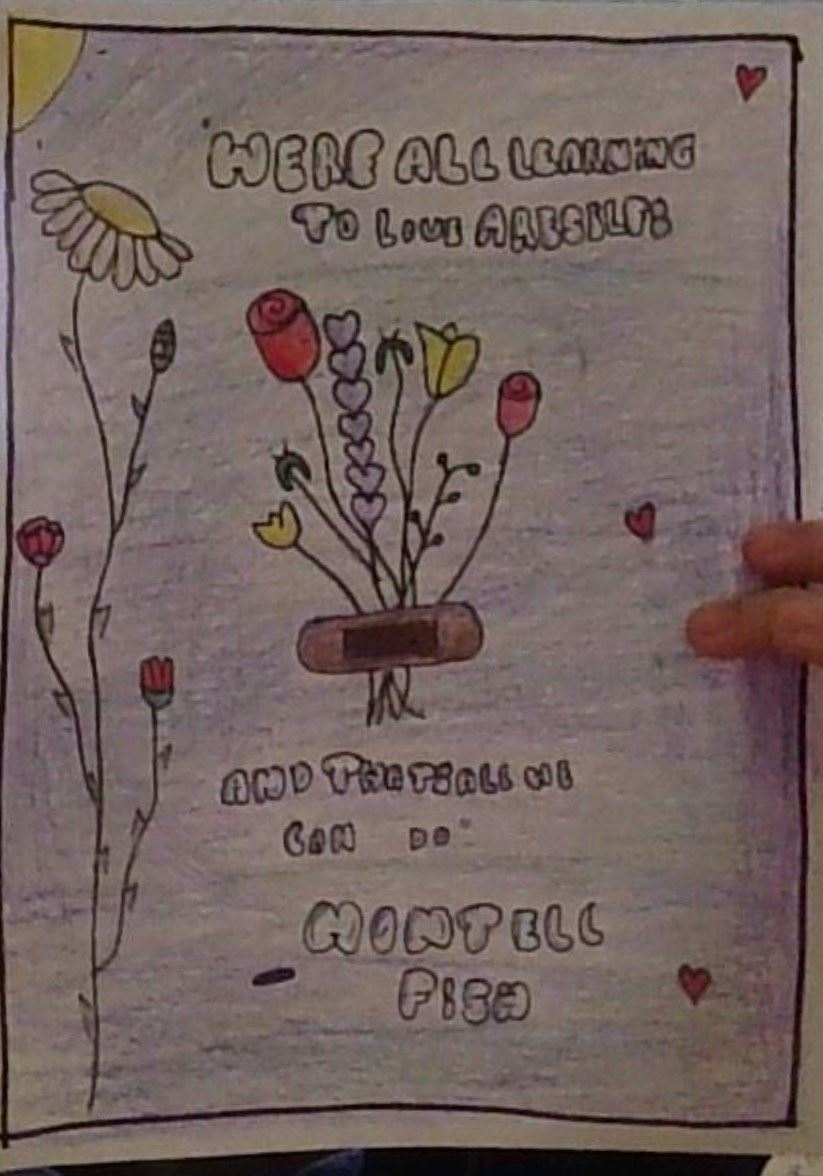 "WERE ALL LEARNING
TO LOVE ARESELFS
AND THATS ALL WE
CAN DO"
- MONTELL
FISH